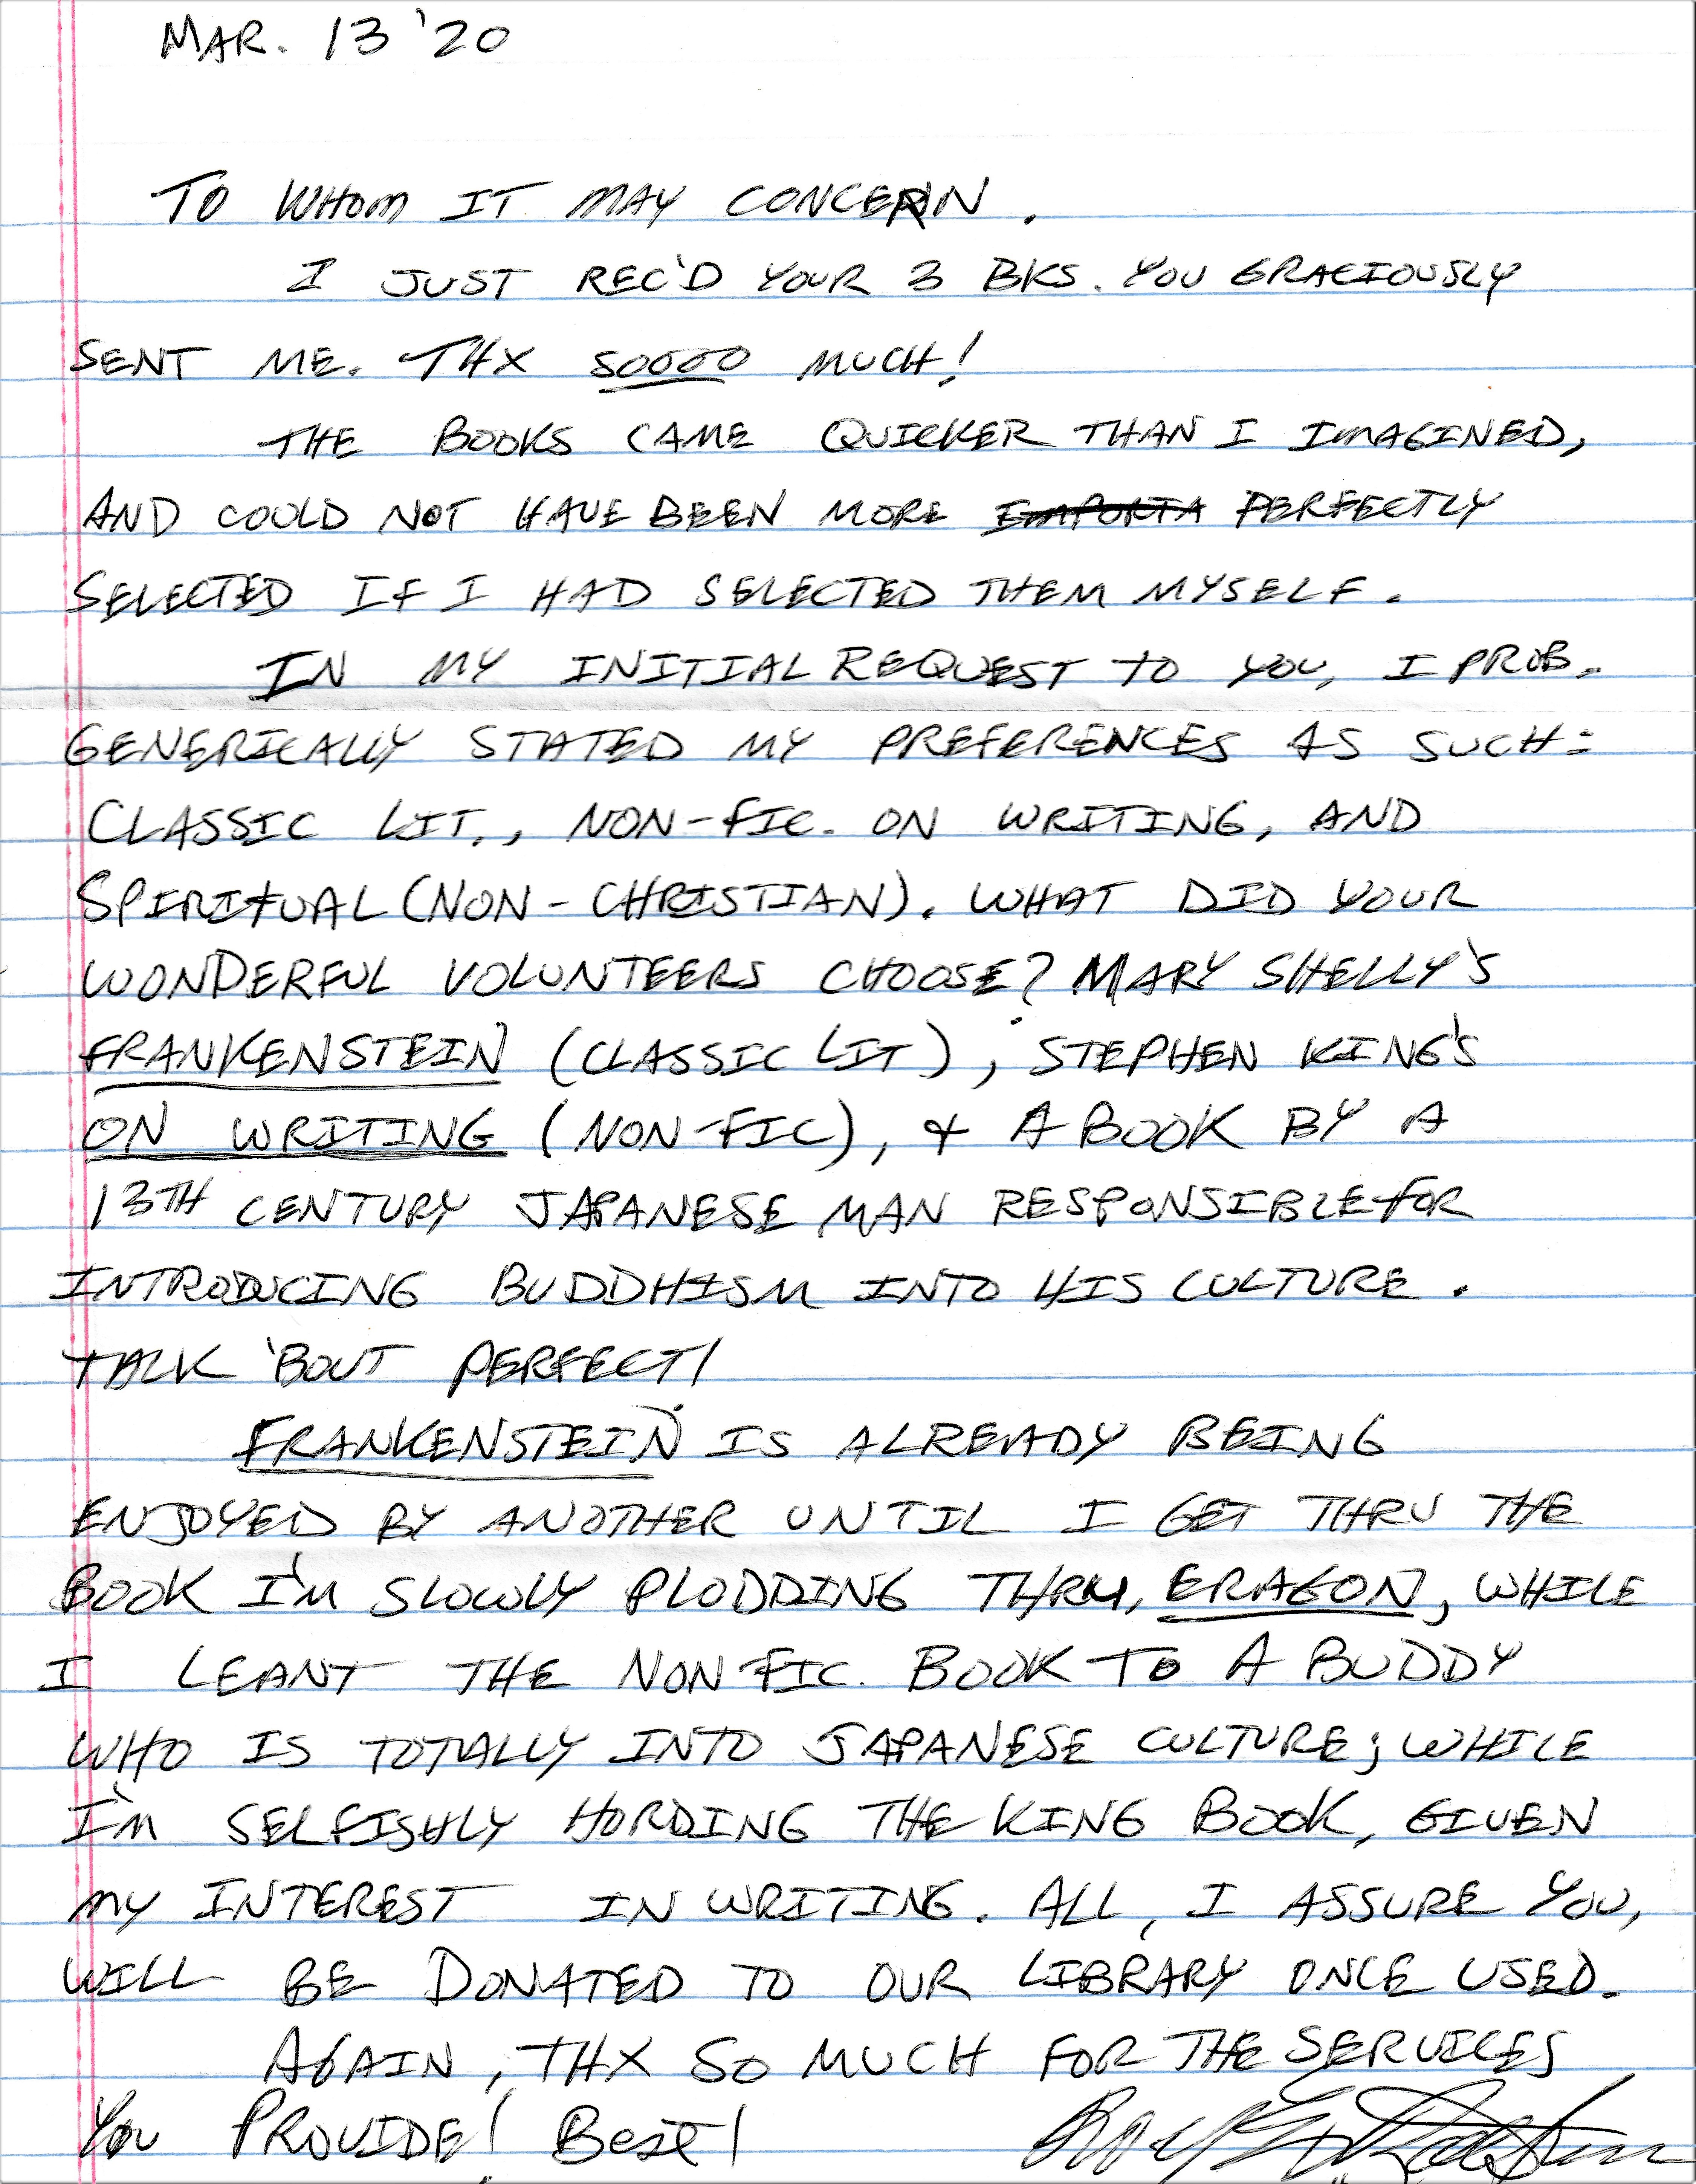 MAR. 13 '20
TO WHOM IT MAY CONCERN.
I JUST REC'D YOUR 3 BKS. YOU GRACIOUSLY
SENT ME. THX SOOOO MUCH!
THE BOOKS CAME QUICKER THAN I IMAGINED,
AND COULD NOT HAVE BEEN MORE IMPORTA PERFECTLY
SELECTED IF I HAD SELECTED THEM MYSELF.
IN MY INITIAL REQUEST TO YOU, I PROB.
GENERICALLY STATED MY PREFERENCES AS SUCH:
CLASSIC LIT., NON-FIC. ON WRITING, AND
SPIRITUAL (NON-CHRISTIAN). WHAT DID YOUR
WONDERFUL VOLUNTEERS CHOOSE? MARY SHELLY'S
FRANKENSTEIN (CLASSIC LIT), STEPHEN KING'S
ON WRITING (NON-FIC), + A BOOK BY A
13TH CENTURY JAPANESE MAN RESPONSIBLE FOR
INTRODUCING BUDDHISM INTO HIS CULTURE.
TALK 'BOUT PERFECT!
FRANKENSTEIN IS ALREADY BEING
ENJOYED BY ANOTHER UNTIL I GET THRU THE
BOOK I'M SLOWLY PLODDING THRU, ERAGON, WHILE
I LEANT THE NON FIC. BOOK TO A BUDDY
WHO IS TOTALLY INTO JAPANESE CULTURE; WHILE
I'M SELFISHLY HORDING THE KING BOOK, GIVEN
MY INTEREST IN WRITING. ALL, I ASSURE YOU,
WILL BE DONATED TO OUR LIBRARY ONCE USED.
AGAIN, THX SO MUCH FOR THE SERVICES
YOU PROVIDE! BEST!